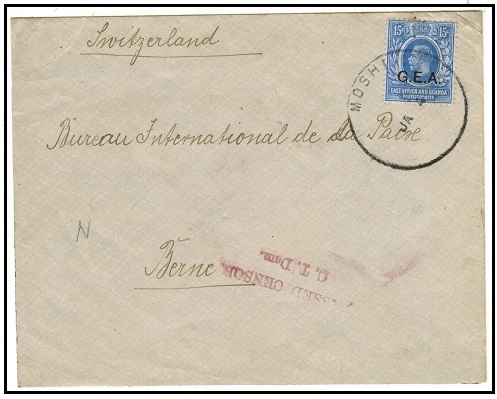 Switzerland
15c 15c
G.E.A.
EAST AFRICA AND UGANDA
PROTECTORATES
MOSHI
JA
Bureau International de la Paix
N
Berne
PASSED CENSOR